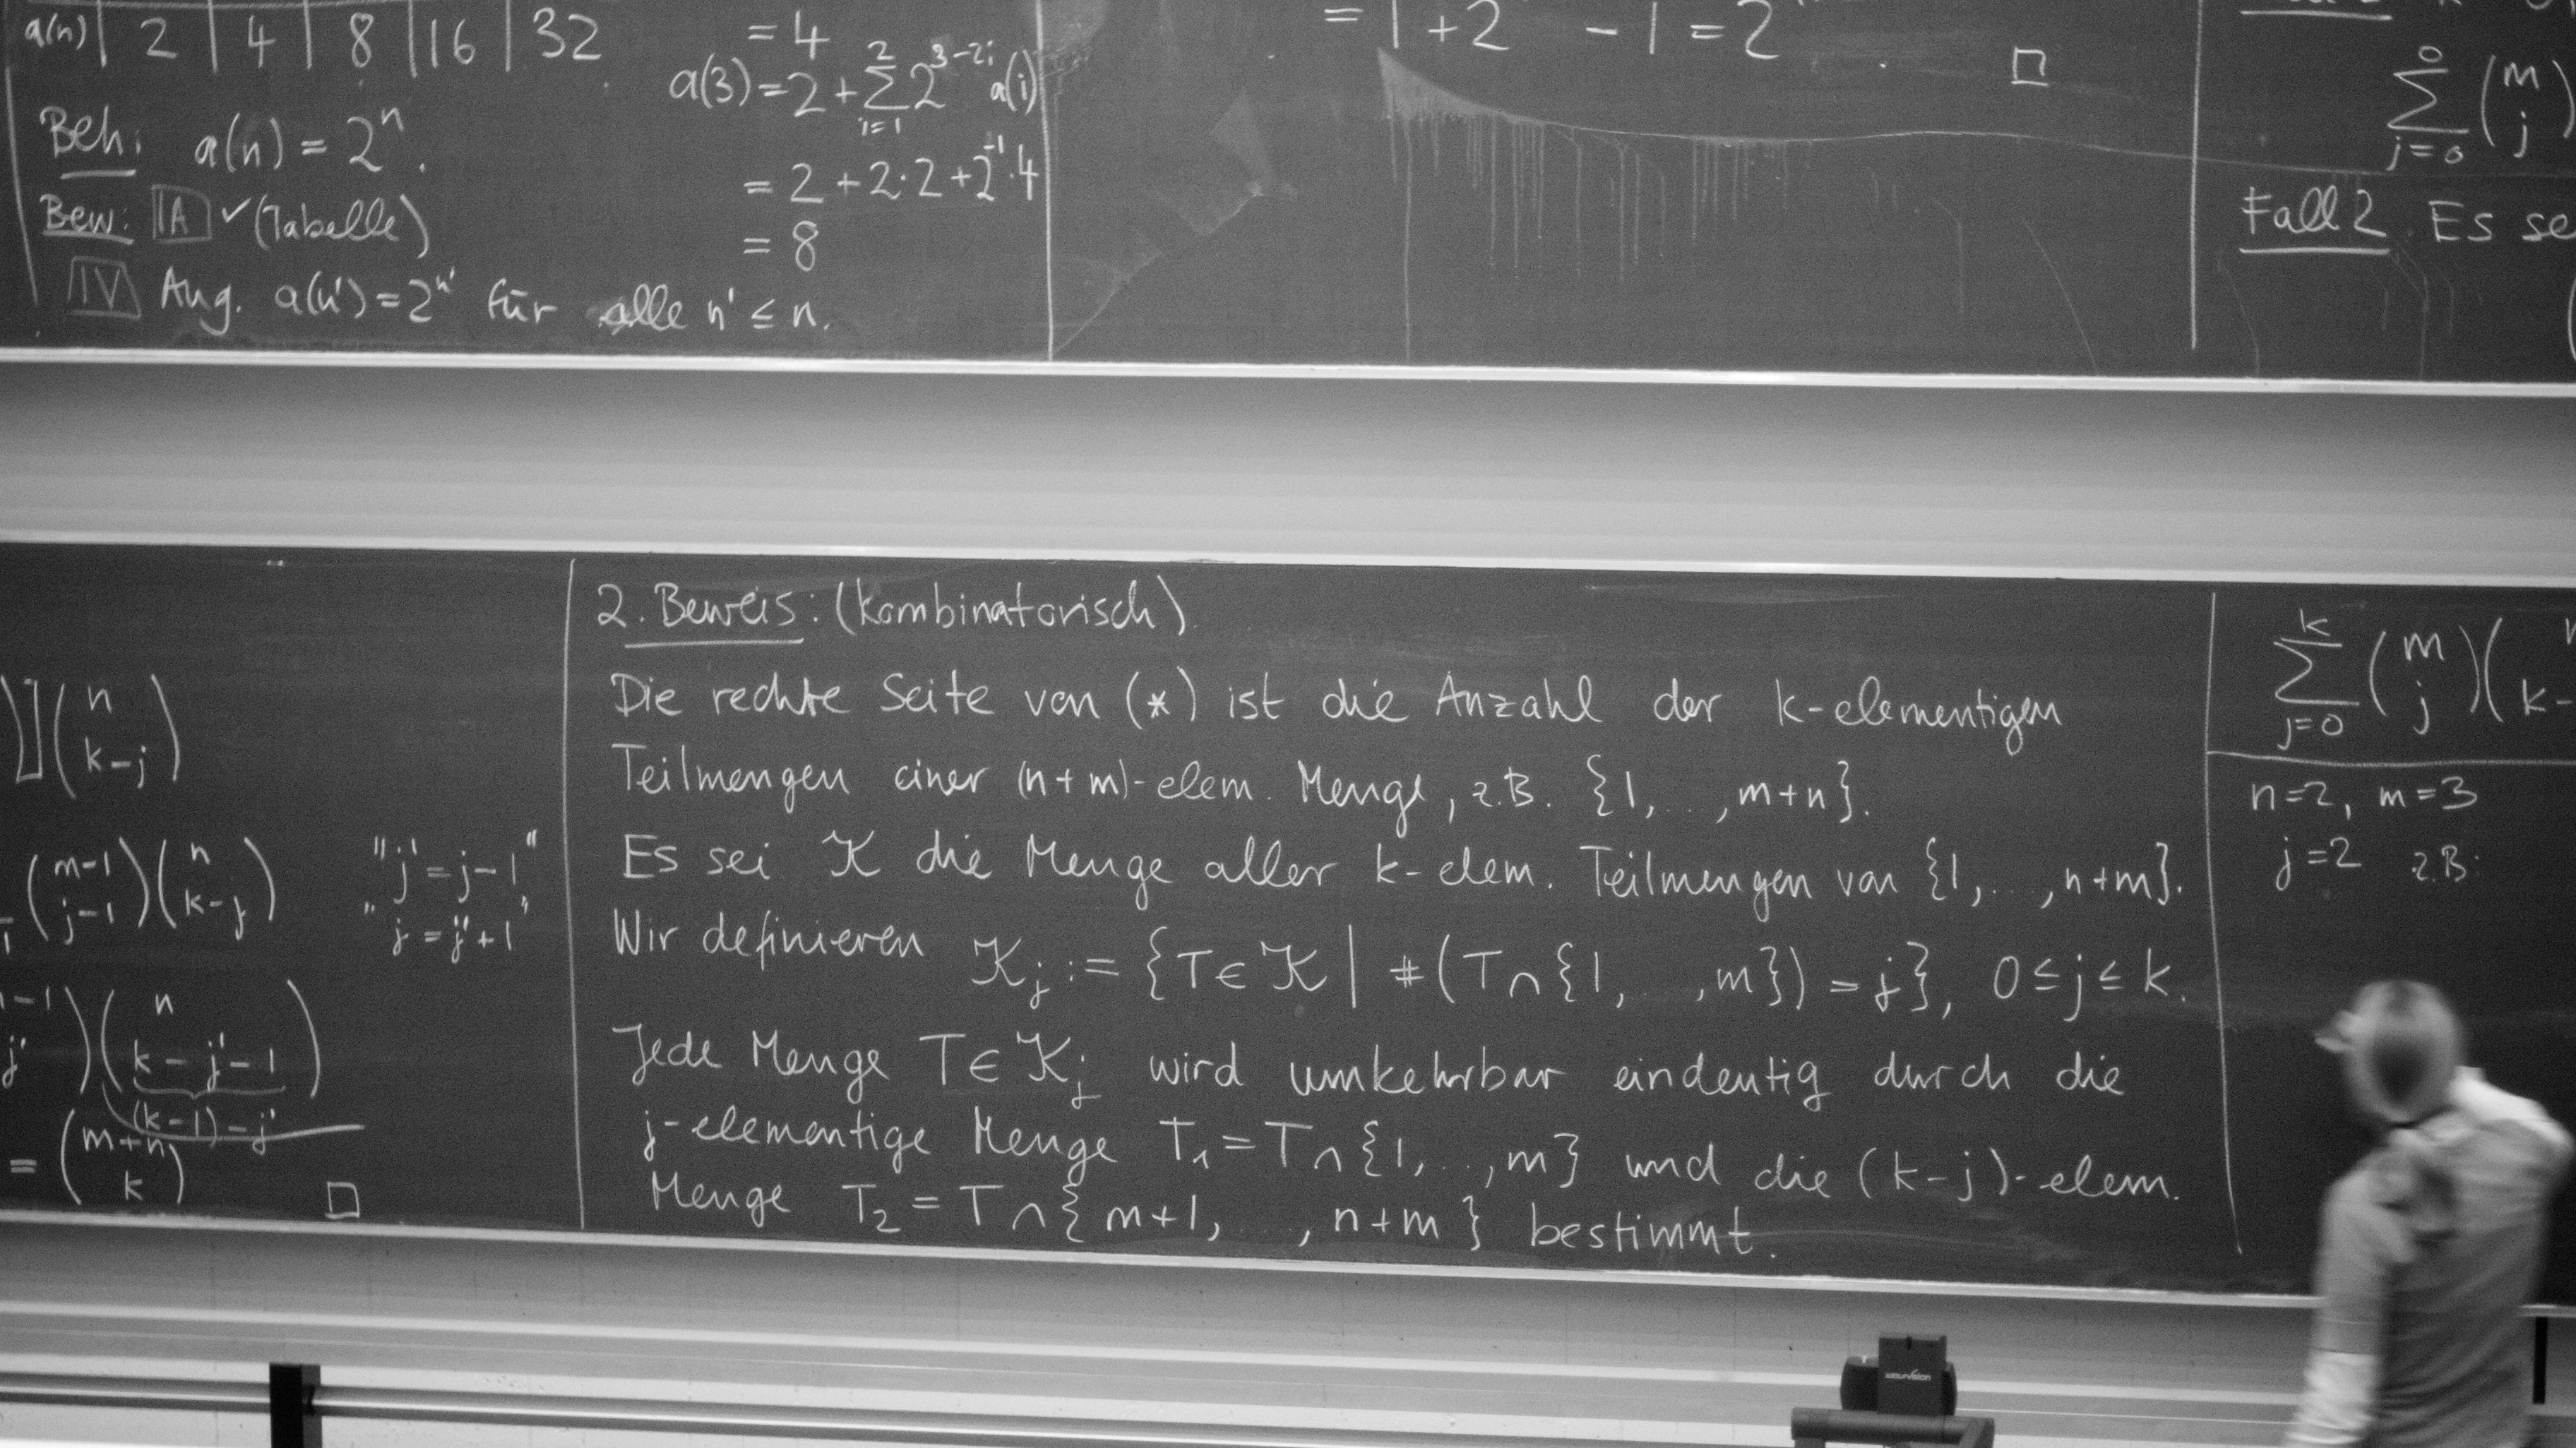 a(n) | 2 | 4 | 8 | 16 | 32
Beh: a(n) = 2^n.
Bew: IA ✓ (Tabelle)
IV Ang. a(n') = 2^n' für alle n' ≤ n.
= 4
a(3) = 2 + ∑_{i=1}^{2} 2^{3-2i} a(i)
= 2 + 2·2 + 2^{-1}·4
= 8
= 1 + 2 - 1 = 2
□
∑_{j=0}^{0} (m j)
Fall 2 Es se
)](n k-j)
(m-1 j-1)(n k-j)
"j' = j-1"
"j = j'+1"
j')(n k-j'-1)
(k-1)-j'
= (m+n k) □
2. Beweis: (kombinatorisch).
Die rechte Seite von (*) ist die Anzahl der k-elementigen
Teilmengen einer (n+m)-elem. Menge, z.B. {1, ..., m+n}.
Es sei K die Menge aller k-elem. Teilmengen von {1, ..., n+m}.
Wir definieren K_j := {T ∈ K | #(T ∩ {1, ..., m}) = j}, 0 ≤ j ≤ k.
Jede Menge T ∈ K_j wird umkehrbar eindeutig durch die
j-elementige Menge T_1 = T ∩ {1, ..., m} und die (k-j)-elem.
Menge T_2 = T ∩ {m+1, ..., n+m} bestimmt.
∑_{j=0}^{k} (m j)( k-
n=2, m=3
j=2 z.B:
wolfvision